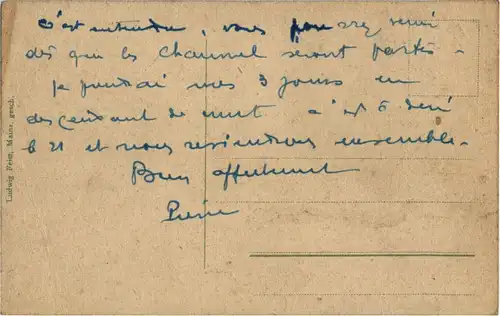 c'est entendu, vous pourrez venir
dès que les Chaumel seront partis.
je prendrai mes 3 jours en
descendant de nuit c'est à dire
le 21 et nous reviendrons ensemble.
Bien affectueusement
Pierre
Ludwig Feist, Mainz, gesch.